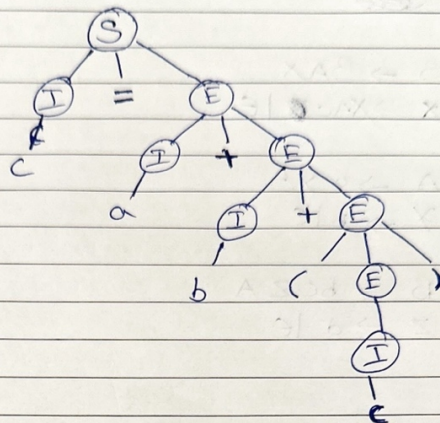 S
I = E
c I + E
a I + E
b ( E )
I
c